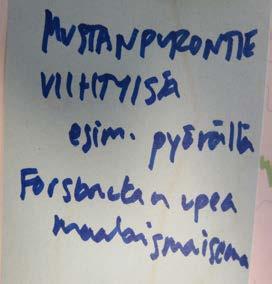 MUSTANPURONTIE
VIIHTYISÄ
esim. pyörällä
Forsbackan upea
maalaismaisema